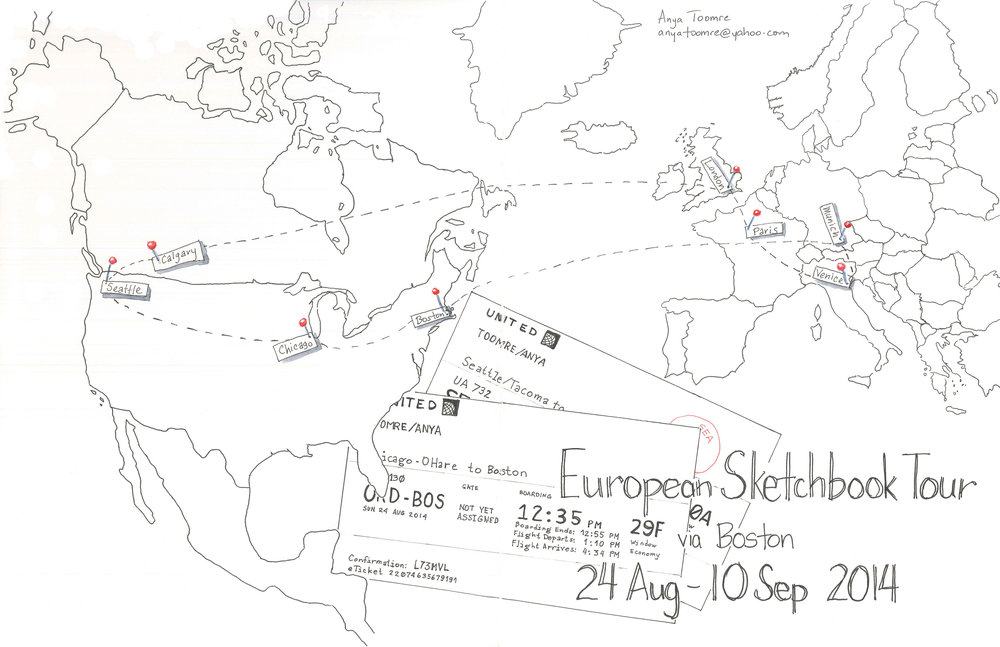 Anya Toomre
anyatoomre@yahoo.com
London
Paris
Munich
Venice
Calgary
Seattle
Chicago
Boston
UNITED
TOOMRE/ANYA
Seattle/Tacoma to
UA 732
SEA
NITED
OMRE/ANYA
icago-OHare to Boston
130
ORD-BOS
SUN 24 AUG 2014
GATE
NOT YET
ASSIGNED
BOARDING
12:35 PM
Boarding Ends: 12:55 PM
Flight Departs: 1:10 PM
Flight Arrives: 4:34 PM
29F
Window
Economy
Confirmation: L73MVL
eTicket 22074635679191
European Sketchbook Tour
via Boston
24 Aug - 10 Sep 2014